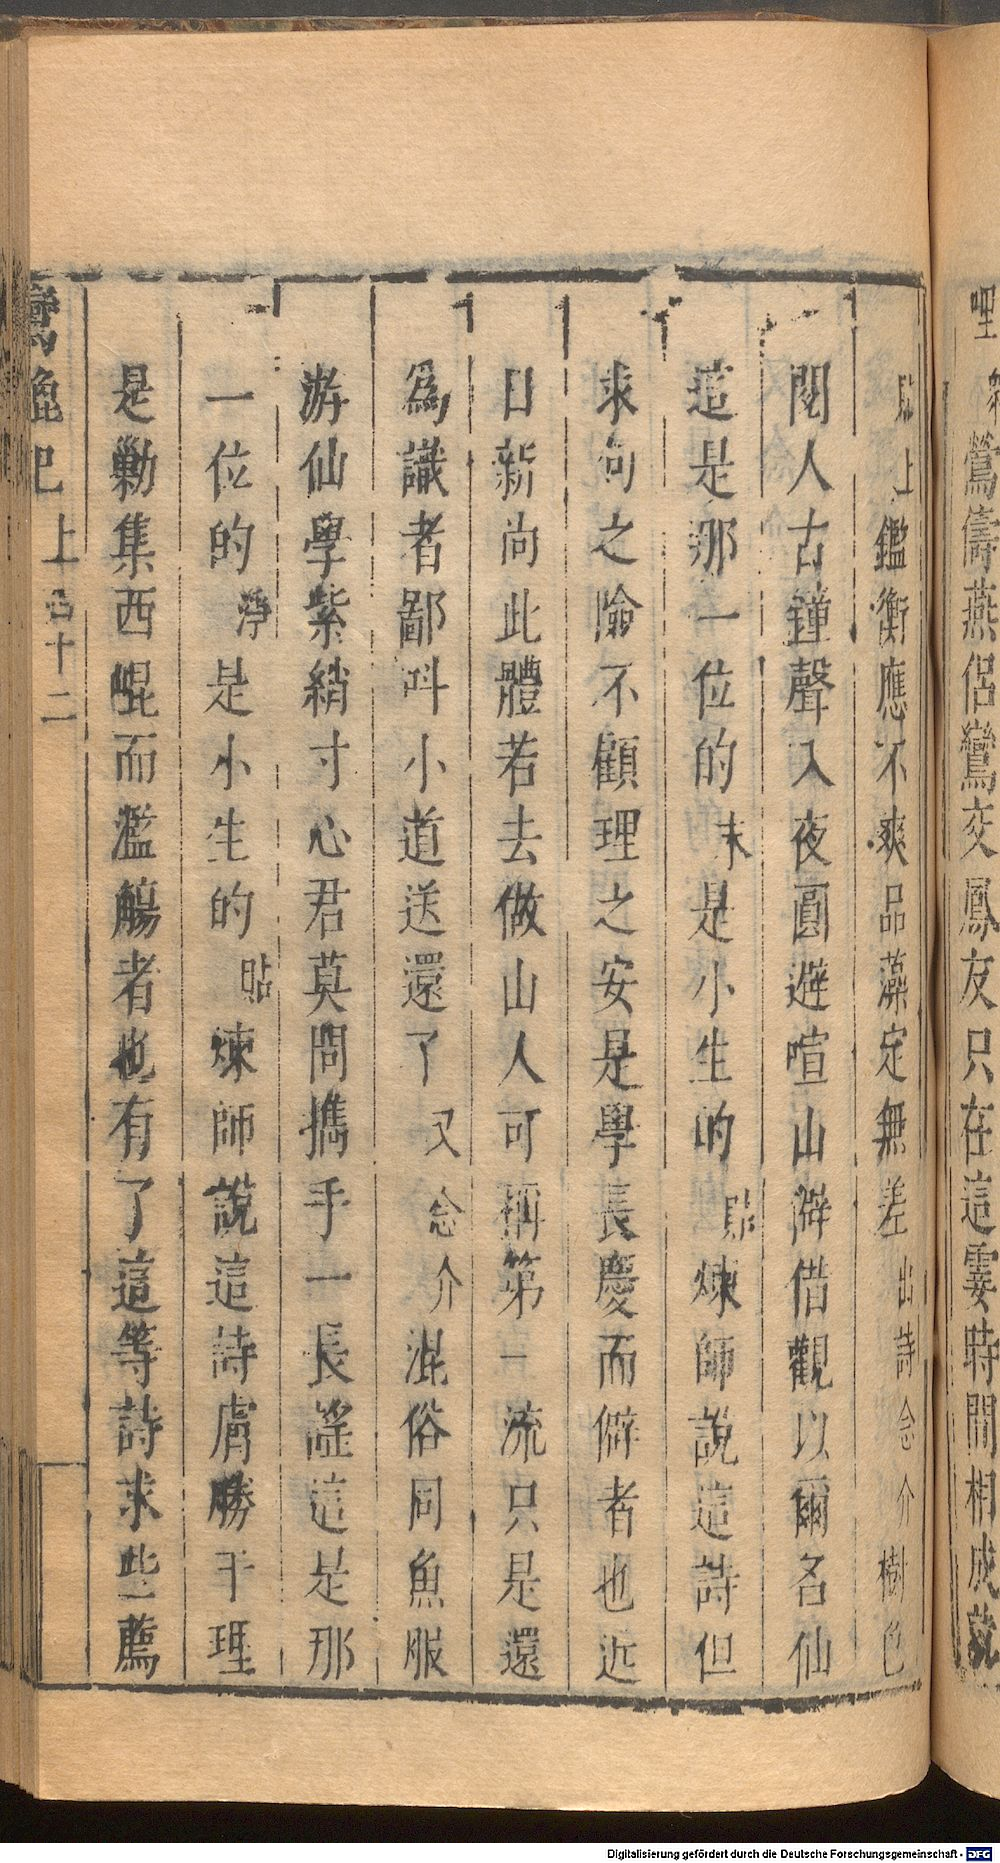 哩
鶯儔燕侶鸞交鳳友只在這霎時間相成就
貼上鑑衡應不爽品藻定無差出詩念介樹色
閱人古鐘聲入夜圓避喧山僻借觀以爾名仙
這是那一位的末是小生的貼煉師說這詩但
求句之險不顧理之安是學長慶而僻者也近
日新尚此體若去做山人可稱第一流只是還
為識者鄙呌小道送還了又念介混俗同魚服
游仙學紫綃寸心君莫問攜手一長謡這是那
一位的淨是小生的貼煉師說這詩膚勝于理
是勦集西崐而濫觴者也有了這等詩求些薦
鴛鴦記上 十二
Digitalisierung gefördert durch die Deutsche Forschungsgemeinschaft - DFG